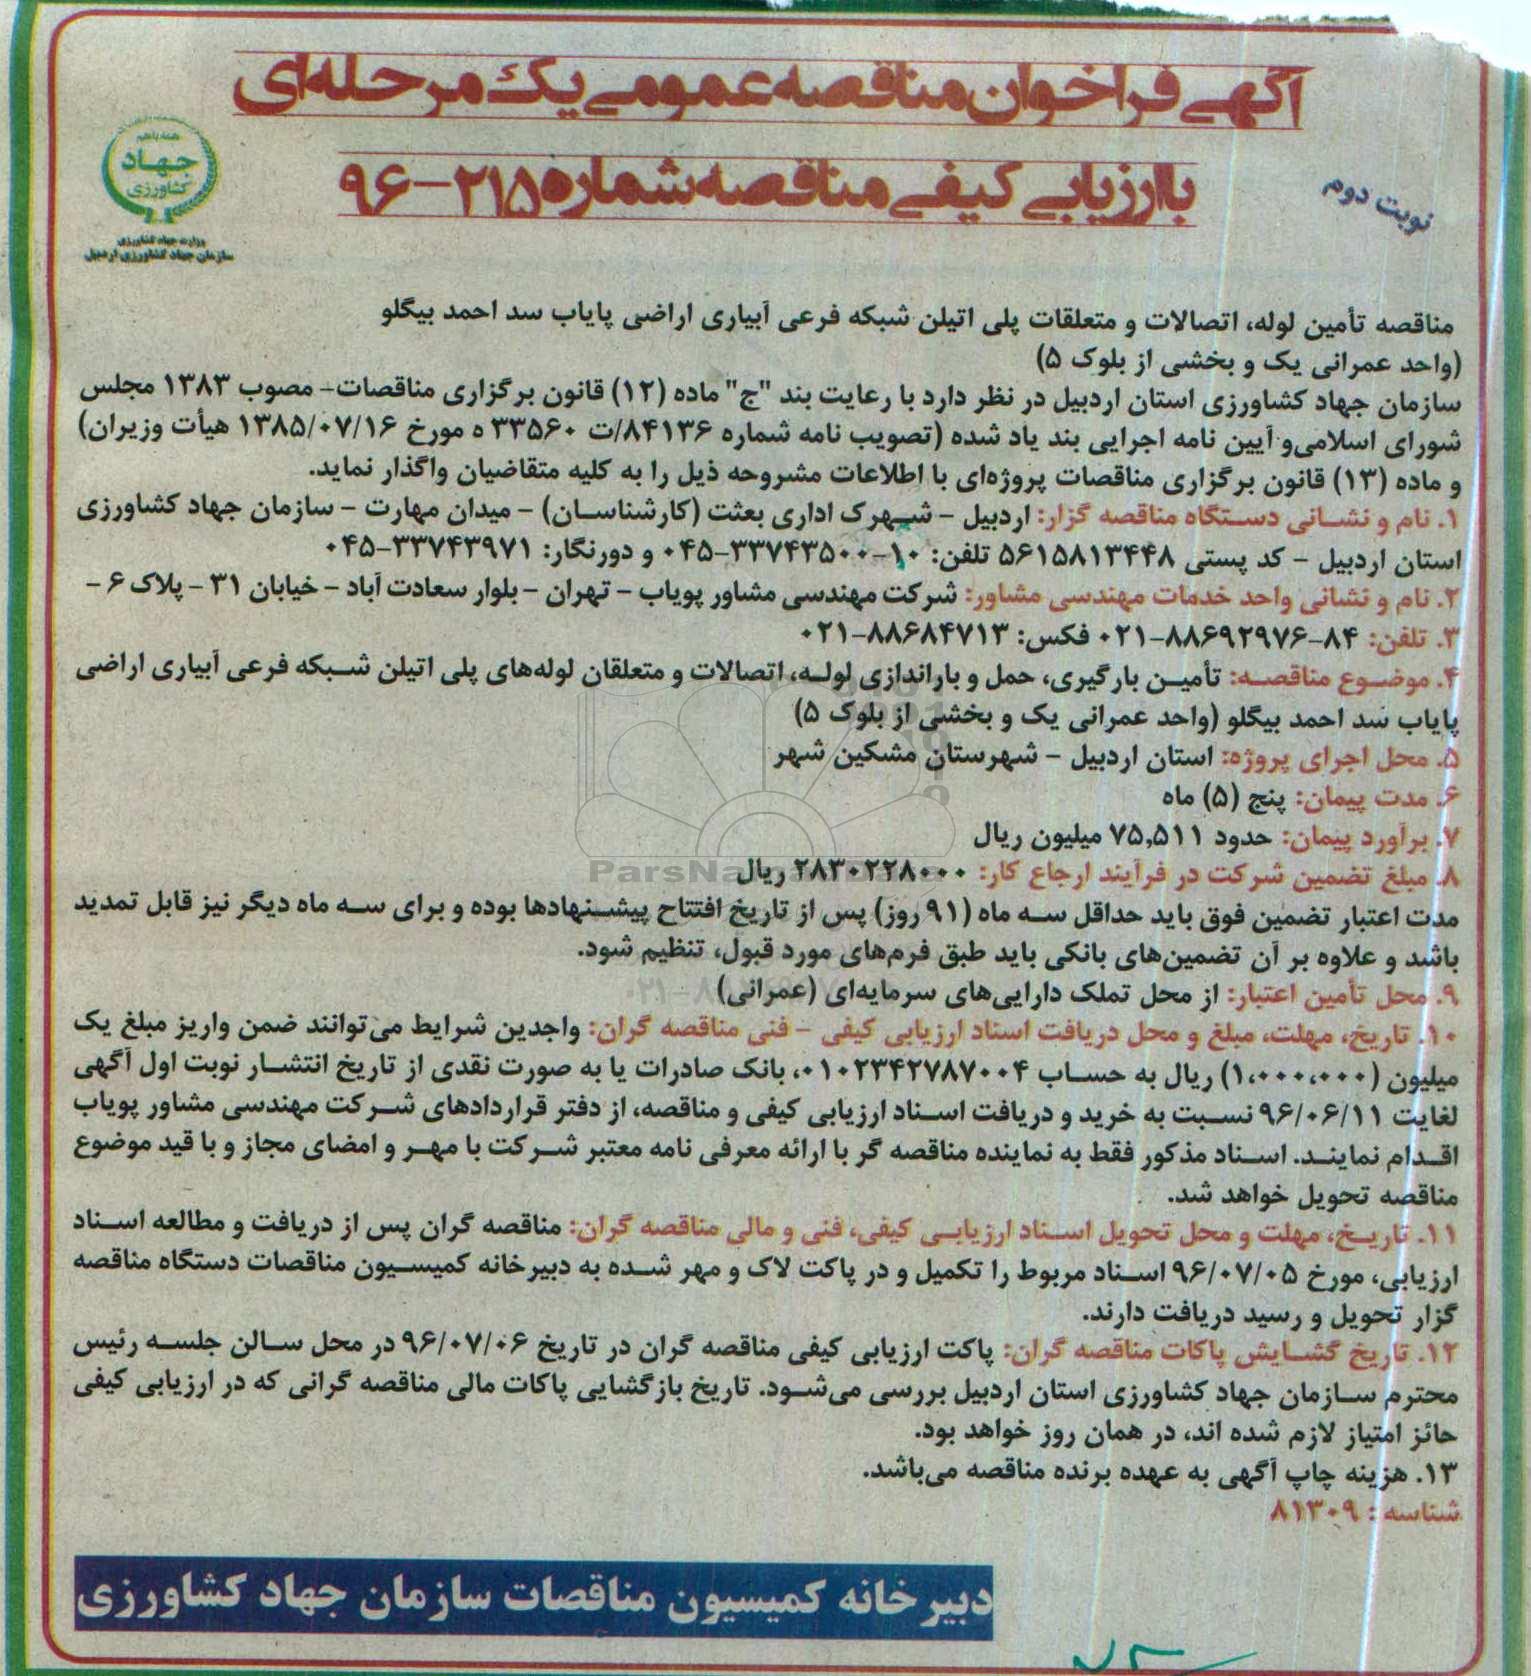 آگهی فراخوان مناقصه عمومی یک مرحله‌ای
با ارزیابی کیفی مناقصه شماره ۲۱۵-۹۶
نوبت دوم
همه با هم
جهاد
کشاورزی
وزارت جهاد کشاورزی
سازمان جهاد کشاورزی اردبیل
مناقصه تأمین لوله، اتصالات و متعلقات پلی اتیلن شبکه فرعی آبیاری اراضی پایاب سد احمد بیگلو
(واحد عمرانی یک و بخشی از بلوک ۵)
سازمان جهاد کشاورزی استان اردبیل در نظر دارد با رعایت بند "ج" ماده (۱۲) قانون برگزاری مناقصات- مصوب ۱۳۸۳ مجلس
شورای اسلامی‌و آیین نامه اجرایی بند یاد شده (تصویب نامه شماره ۸۴۱۳۶/ت ۳۳۵۶۰ ه مورخ ۱۳۸۵/۰۷/۱۶ هیأت وزیران)
و ماده (۱۳) قانون برگزاری مناقصات پروژه‌ای با اطلاعات مشروحه ذیل را به کلیه متقاضیان واگذار نماید.
۱. نام و نشانی دستگاه مناقصه گزار: اردبیل - شهرک اداری بعثت (کارشناسان) - میدان مهارت - سازمان جهاد کشاورزی
استان اردبیل - کد پستی ۵۶۱۵۸۱۳۴۴۸ تلفن: ۱۰-۳۳۷۴۳۵۰۰-۰۴۵ و دورنگار: ۳۳۷۴۳۹۷۱-۰۴۵
۲. نام و نشانی واحد خدمات مهندسی مشاور: شرکت مهندسی مشاور پویاب - تهران - بلوار سعادت آباد - خیابان ۳۱ - پلاک ۶ -
۳. تلفن: ۸۴-۸۸۶۹۲۹۷۶-۰۲۱ فکس: ۸۸۶۸۴۷۱۳-۰۲۱
۴. موضوع مناقصه: تأمین بارگیری، حمل و باراندازی لوله، اتصالات و متعلقان لوله‌های پلی اتیلن شبکه فرعی آبیاری اراضی
پایاب سد احمد بیگلو (واحد عمرانی یک و بخشی از بلوک ۵)
۵. محل اجرای پروژه: استان اردبیل - شهرستان مشکین شهر
۶. مدت پیمان: پنج (۵) ماه
۷. برآورد پیمان: حدود ۷۵,۵۱۱ میلیون ریال
۸. مبلغ تضمین شرکت در فرآیند ارجاع کار: ۲۸۳۰۲۲۸۰۰۰ ریال
مدت اعتبار تضمین فوق باید حداقل سه ماه (۹۱ روز) پس از تاریخ افتتاح پیشنهادها بوده و برای سه ماه دیگر نیز قابل تمدید
باشد و علاوه بر آن تضمین‌های بانکی باید طبق فرم‌های مورد قبول، تنظیم شود.
۹. محل تأمین اعتبار: از محل تملک دارایی‌های سرمایه‌ای (عمرانی)
۱۰. تاریخ، مهلت، مبلغ و محل دریافت اسناد ارزیابی کیفی - فنی مناقصه گران: واجدین شرایط می‌توانند ضمن واریز مبلغ یک
میلیون (۱,۰۰۰,۰۰۰) ریال به حساب ۰۱۰۲۳۴۲۷۸۷۰۰۴، بانک صادرات یا به صورت نقدی از تاریخ انتشار نوبت اول آگهی
لغایت ۹۶/۰۶/۱۱ نسبت به خرید و دریافت اسناد ارزیابی کیفی و مناقصه، از دفتر قراردادهای شرکت مهندسی مشاور پویاب
اقدام نمایند. اسناد مذکور فقط به نماینده مناقصه گر با ارائه معرفی نامه معتبر شرکت با مهر و امضای مجاز و با قید موضوع
مناقصه تحویل خواهد شد.
۱۱. تاریخ، مهلت و محل تحویل اسناد ارزیابی کیفی، فنی و مالی مناقصه گران: مناقصه گران پس از دریافت و مطالعه اسناد
ارزیابی، مورخ ۹۶/۰۷/۰۵ اسناد مربوط را تکمیل و در پاکت لاک و مهر شده به دبیرخانه کمیسیون مناقصات دستگاه مناقصه
گزار تحویل و رسید دریافت دارند.
۱۲. تاریخ گشایش پاکات مناقصه گران: پاکت ارزیابی کیفی مناقصه گران در تاریخ ۹۶/۰۷/۰۶ در محل سالن جلسه رئیس
محترم سازمان جهاد کشاورزی استان اردبیل بررسی می‌شود. تاریخ بازگشایی پاکات مالی مناقصه گرانی که در ارزیابی کیفی
حائز امتیاز لازم شده اند، در همان روز خواهد بود.
۱۳. هزینه چاپ آگهی به عهده برنده مناقصه می‌باشد.
شناسه : ۸۱۳۰۹
دبیرخانه کمیسیون مناقصات سازمان جهاد کشاورزی